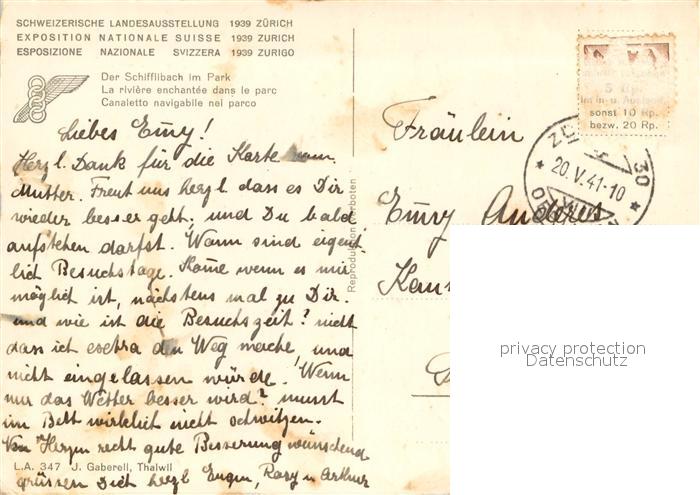 SCHWEIZERISCHE LANDESAUSSTELLUNG 1939 ZÜRICH
EXPOSITION NATIONALE SUISSE 1939 ZURICH
ESPOSIZIONE NAZIONALE SVIZZERA 1939 ZURIGO
Der Schifflibach im Park
La rivière enchantée dans le parc
Canaletto navigabile nel parco
Liebes Emy!
Herzl. Dank für die Karte von
Mutter. Freut uns herzl. dass es Dir
wieder besser geht, und Du bald
aufstehen darfst. Wann sind eigent
lich Besuchstage. Kome wenn es mir
möglich ist, nächstens mal zu Dir.
und wie ist die Besuchszeit? nicht
dass ich exchtra den Weg mache, und
nicht eingelassen würde. Wenn
nur das Wetter besser wird? musst
im Bett wirklich nicht schwitzen.
Von Herzen recht gute Besserung wünschend
grüssen Dich herzl. Eugen, Rosy u Arthur
L.A. 347 J. Gaberell, Thalwil
Reproduktion verboten
5 Rp.
im In- u. Ausland
sonst 10 Rp.
bezw. 20 Rp.
20.V.41-10
30
Fräulein
Emy Anderes
Kan
privacy protection
Datenschutz